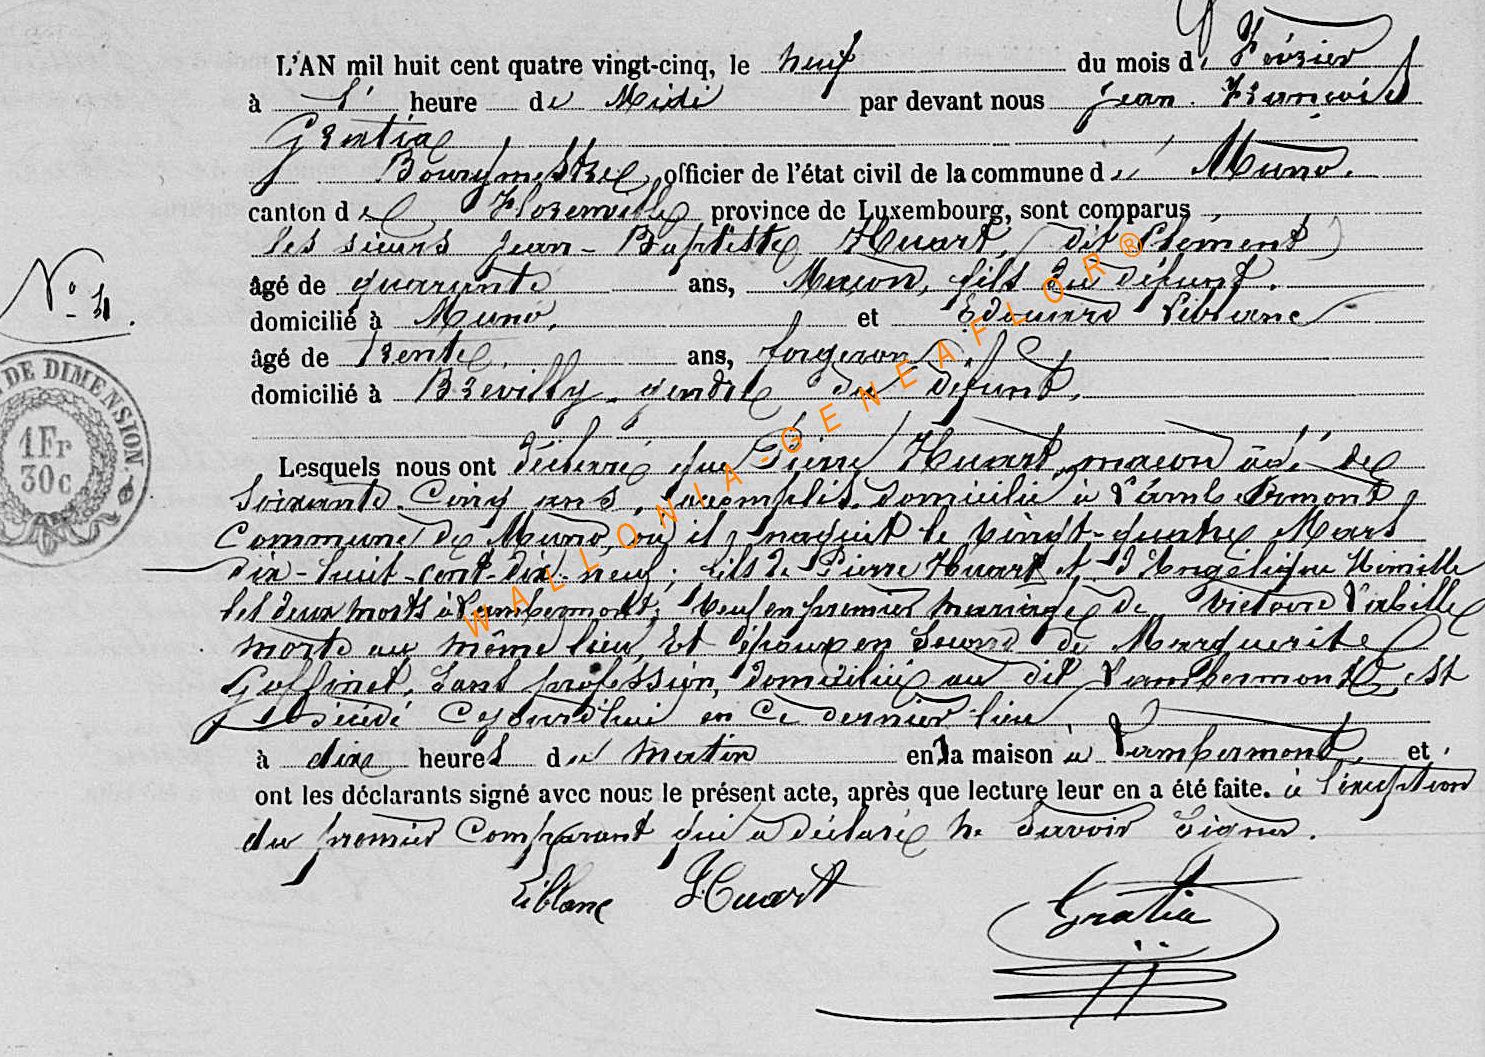 L'AN mil huit cent quatre vingt-cinq, le neuf du mois de Février
à 1' heure de Midi par devant nous Jean François
Gratia
Bourgmestre, officier de l'état civil de la commune de Muno.
canton de Florenville province de Luxembourg, sont comparus
les sieurs Jean-Baptiste Huart (dit Clement)
âgé de quarante ans, Maçon, fils du défunt.
domicilié à Muno, et Edouard Leblanc
N°
âgé de trente ans, forgeron
domicilié à Brevilly, gendre du défunt,
DE DIMENSION.
1 Fr
30 c
Lesquels nous ont déclaré que Pierre Huart, maçon âgé de
soixante-cinq ans, accomplis, domicilié à Lambermont,
Commune de Muno, où il naquit le vingt-quatre Mars
dix-huit-cent-dix-neuf; fils de Pierre Huart et d'Angélique
les deux morts à Lambermont; veuf en premier mariage de Victoire
morte au même lieu, Et époux en second de Marguerite
Goffinet, sans profession, domiciliée au dit Lambermont, est
décédé cejourd'hui en ce dernier lieu
à dix heures du matin en la maison à Lambermont, et
ont les déclarants signé avec nous le présent acte, après que lecture leur en a été faite. à l'exception
du premier Comparant qui a déclaré ne savoir signer.
Leblanc Huart
Gratia
WALLONIA-GENEAFLOR®